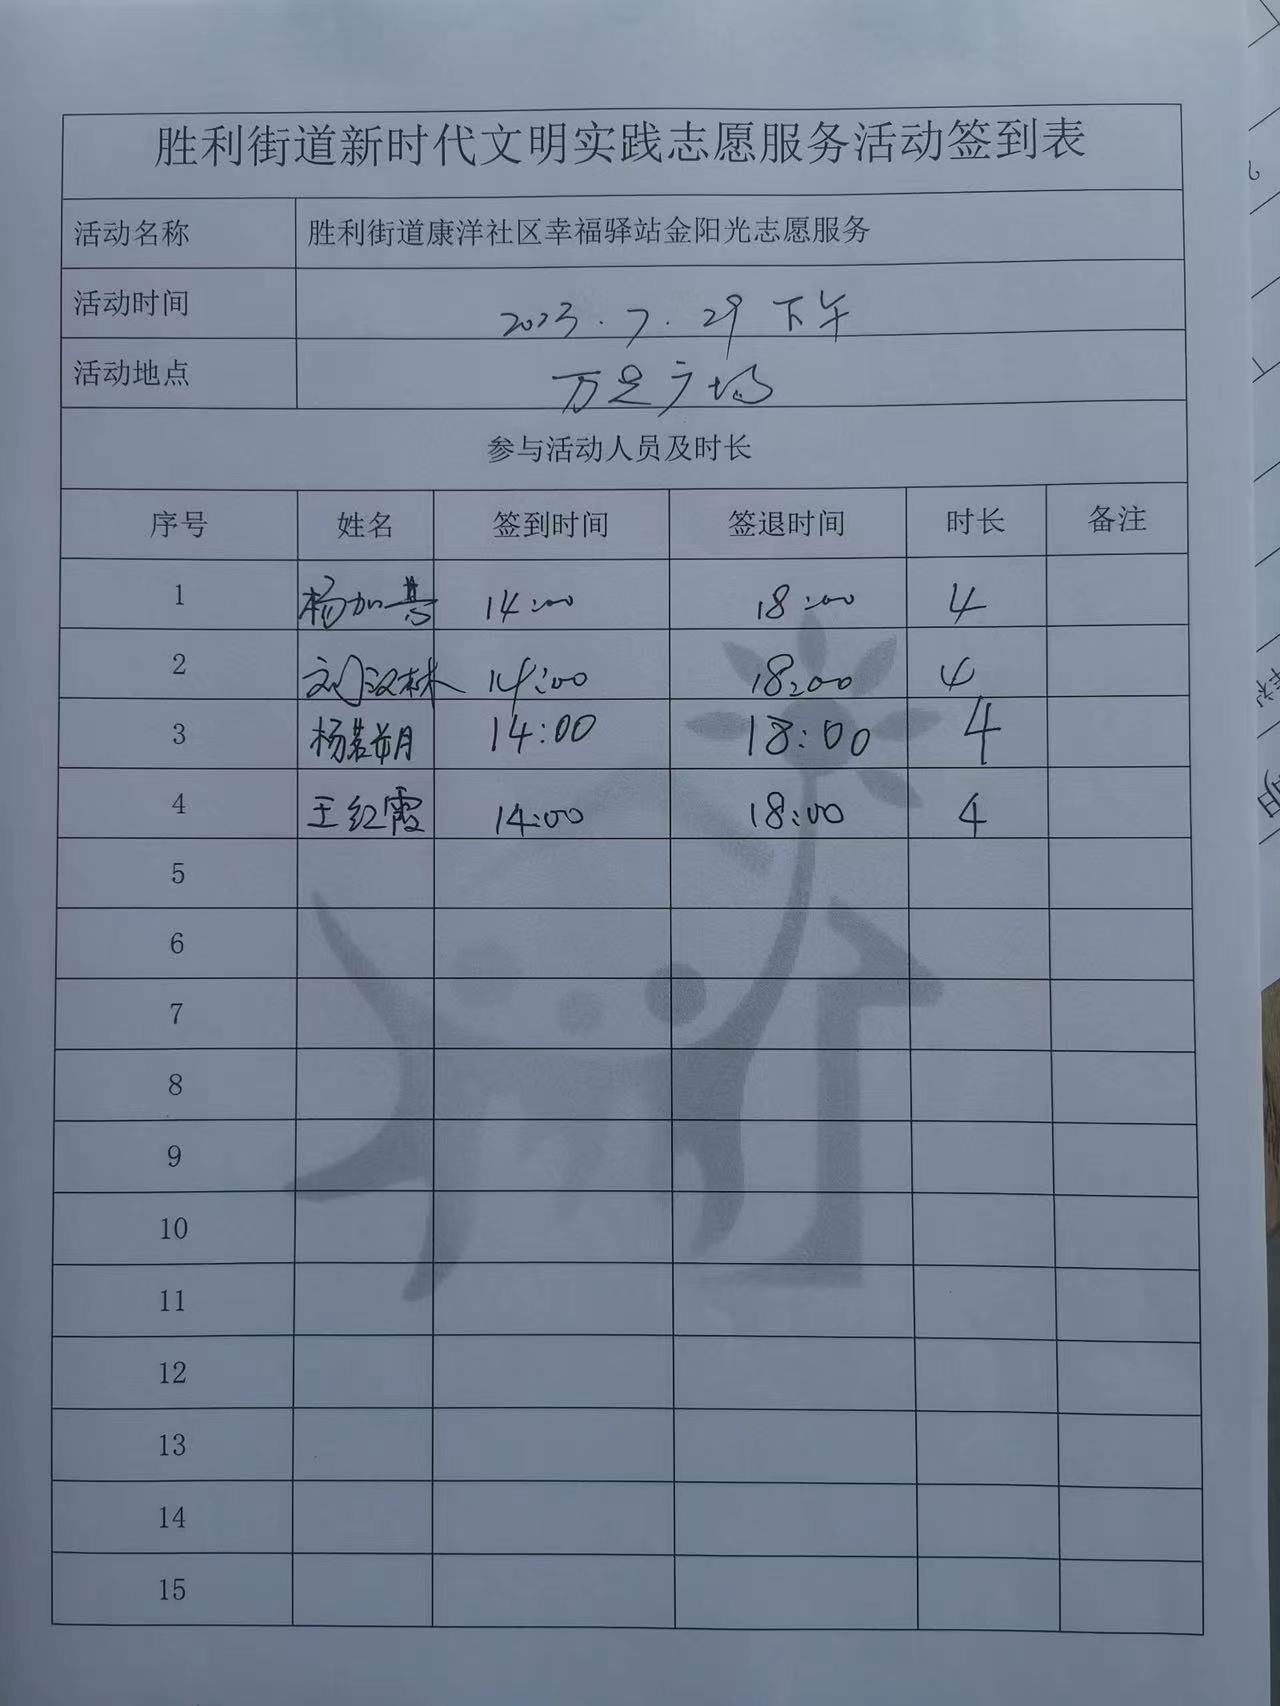 胜利街道新时代文明实践志愿服务活动签到表
活动名称 胜利街道康洋社区幸福驿站金阳光志愿服务
活动时间 2023.7.29 下午
活动地点 万达广场
参与活动人员及时长
序号 姓名 签到时间 签退时间 时长 备注
1 杨加 14:00 18:00 4
2 刘汉林 14:00 18:00 4
3 杨 14:00 18:00 4
4 王红霞 14:00 18:00 4
5
6
7
8
9
10
11
12
13
14
15